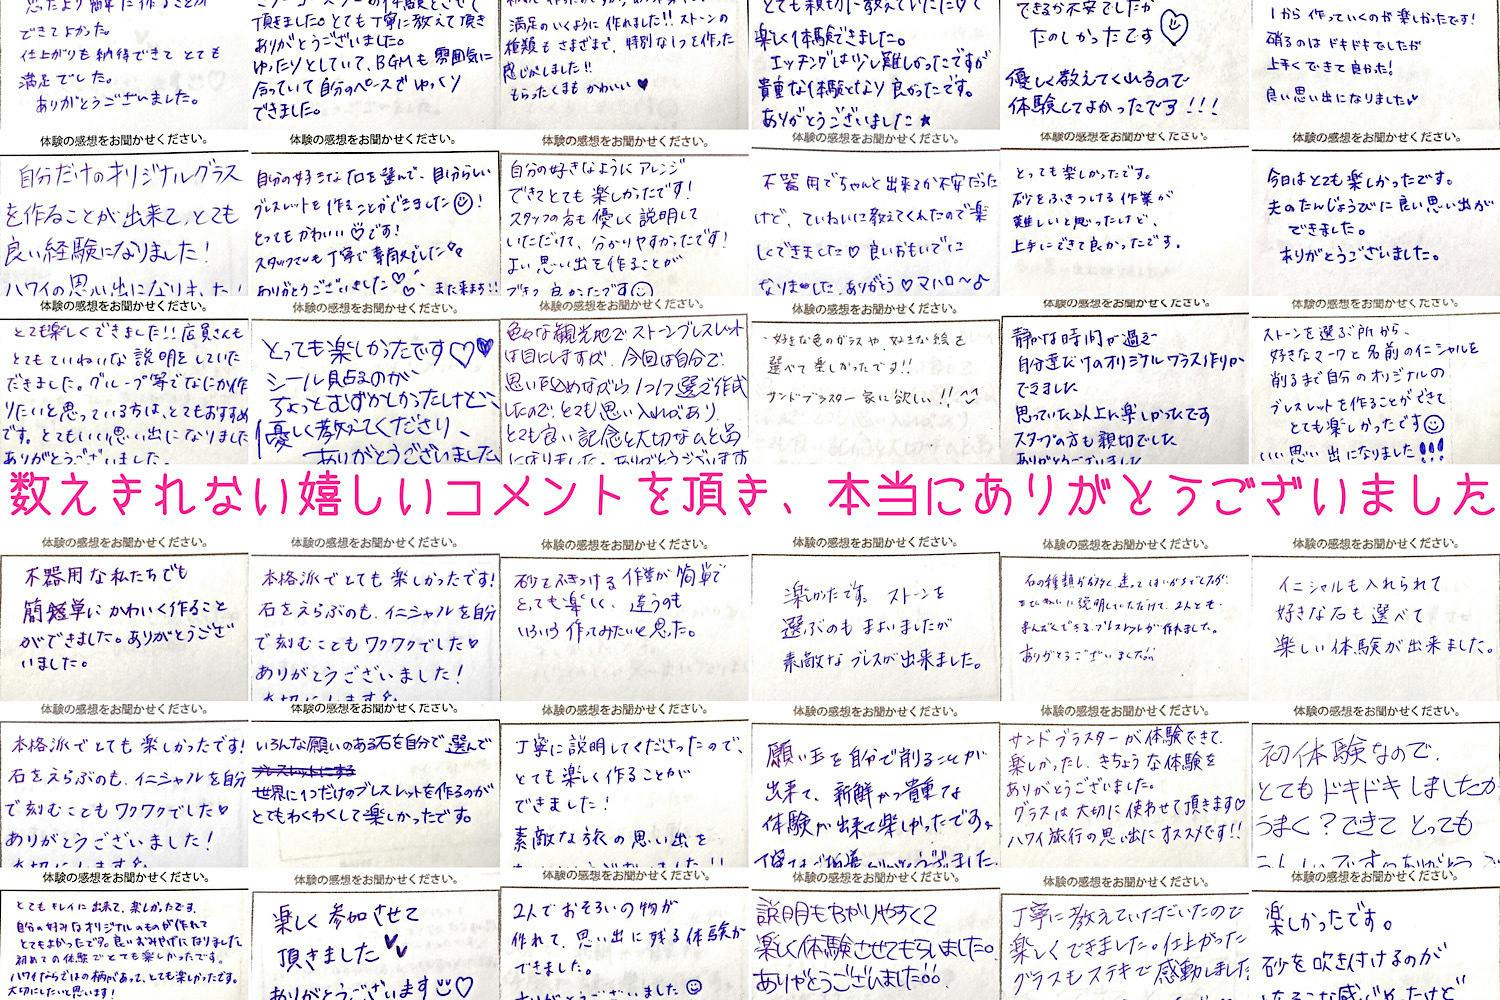 思ったより簡単に作ることが
できてよかった。
仕上がりも納得できてとても
満足でした。
ありがとうございました。
頂きました。とても丁寧に教えて頂き
ありがとうございました。
ゆったりとしていて、BGMも雰囲気に
合っていて自分のペースでゆっくり
できました。
満足のいくように作れました!!ストーンの
種類もさまざまで、特別な1つを作った
感じがしました!!
もらったくまもかわいい♥
とても親切に教えていただいて
楽しく体験できました。
エッチングは少し難しかったですが
貴重な体験となり良かったです。
ありがとうございました★
できるか不安でしたが
たのしかったです
優しく教えてくれるので
体験してよかったです!!!
1から作っていくのが楽しかったです!
硝るのはドキドキでしたが
上手くできて良かった!
良い思い出になりました
体験の感想をお聞かせください。
自分だけのオリジナルグラス
を作ることが出来て、とても
良い経験になりました!
ハワイの思い出になりました!
体験の感想をお聞かせください。
自分の好きな石を選んで、自分らしい
ブレスレットを作ることができました☺!
とってもかわいい♡です!
スタッフさんも丁寧で素敵でした
ありがとうございました♡ また来ます!!
体験の感想をお聞かせください。
自分の好きなようにアレンジ
できてとても楽しかったです!
スタッフの方も優しく説明して
いただけて、分かりやすかったです!
よい思い出を作ることが
できて良かったです☺
体験の感想をお聞かせください。
不器用でちゃんと出来るか不安だった
けど、ていねいに教えてくれたので楽
しくできました♡良いおもいでに
なりました。ありがとう♡マハロ〜♪
体験の感想をお聞かせください。
とっても楽しかったです。
砂をふきつける作業が
難しいと思ったけど、
上手にできて良かったです。
体験の感想をお聞かせください。
今日はとても楽しかったです。
夫のたんじょうびに良い思い出が
できました。
ありがとうございました。
体験の感想をお聞かせください。
とても楽しくできました!!店員さんも
とてもていねいな説明をしていた
だきました。グループ等でなにか作
りたいと思っている方は、とてもおすすめ
です。とてもいい思い出になりました
ありがとうございました。
体験の感想をお聞かせください。
とっても楽しかったです♡♥
シール貼るのが
ちょっとむずかしかったけど、
優しく教えてくださり、
ありがとうございました
体験の感想をお聞かせください。
色々な観光地でストーンブレスレット
は目にしますが、今回は自分で、
思いを込めながら1つ1つ選んで作成
したので、とても思い入れがあり、
とても良い記念と大切なひと品
になりました。ありがとうございます
体験の感想をお聞かせください。
・好きな色のガラスや、好きな絵を
選べて楽しかったです!!
サンドブラスター家に欲しい!!^^
体験の感想をお聞かせください。
静かな時間が過ぎ
自分達だけのオリジナルグラス作りが
できました
思っていた以上に楽しかったです
スタッフの方も親切でした
ありがとうございました
体験の感想をお聞かせください。
ストーンを選ぶ所から、
好きなマークと名前のイニシャルを
削るまで自分のオリジナルの
ブレスレットを作ることができて
とても楽しかったです☺
いい思い出になりました!!!
数えきれない嬉しいコメントを頂き、本当にありがとうございました
体験の感想をお聞かせください。
不器用な私たちでも
簡単にかわいく作ること
ができました。ありがとうござ
いました。
体験の感想をお聞かせください。
本格派でとても楽しかったです!
石をえらぶのも、イニシャルを自分
で刻むこともワクワクでした♥
ありがとうございました!
大切にします
体験の感想をお聞かせください。
砂をふきつける作業が簡単で
とっても楽しく、違うのも
いろいろ作ってみたいと思った。
体験の感想をお聞かせください。
楽しかったです。ストーンを
選ぶのもまよいましたが
素敵なブレスが出来ました。
体験の感想をお聞かせください。
ていねいに説明していただけて、2人とも
まんぞくできるブレスレットが作れました。
ありがとうございました
体験の感想をお聞かせください。
イニシャルも入れられて
好きな石も選べて
楽しい体験が出来ました。
体験の感想をお聞かせください。
本格派でとても楽しかったです!
石をえらぶのも、イニシャルを自分
で刻むこともワクワクでした♥
ありがとうございました!
大切にします
体験の感想をお聞かせください。
いろんな願いのある石を自分で選んで
ブレスレットにする
世界に1つだけのブレスレットを作るのが
とてもわくわくして楽しかったです。
体験の感想をお聞かせください。
丁寧に説明してくださったので、
とても楽しく作ることが
できました!
素敵な旅の思い出を
ありがとうございました!!
体験の感想をお聞かせください。
願い玉を自分で削ることが
出来て、新鮮かつ貴重な
体験が出来て楽しかったです。
体験の感想をお聞かせください。
サンドブラスターが体験できて、
楽しかったし、きちょうな体験を
ありがとうございました。
グラスは大切に使わせて頂きます♡
ハワイ旅行の思い出にオススメです!!
体験の感想をお聞かせください。
初体験なので、
とてもドキドキしましたが
うまく?できてとっても
体験の感想をお聞かせください。
とてもキレイに出来て、楽しかったです。
自分の好みなオリジナルのものが作れて
とてもよかったです。良いおみやげになりました
初めての体験でとても楽しかったです。
ハワイならではの柄があって、とても楽しかったです。
大切にしたいと思います!
体験の感想をお聞かせください。
楽しく参加させて
頂きました
ありがとうございます♡
体験の感想をお聞かせください。
2人でおそろいの物が
作れて、思い出に残る体験が
できました。
ありがとうございました☺
体験の感想をお聞かせください。
説明もわかりやすくて
楽しく体験させてもらいました。
ありがとうございました
体験の感想をお聞かせください。
丁寧に教えていただいたので
楽しくできました。仕上がった
グラスもステキで感動しました
体験の感想をお聞かせください。
楽しかったです。
砂を吹き付けるのが